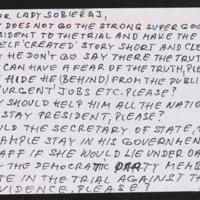 OR LADY SOBIERAJ,
Y DOES NOT GO THE STRONG SUPER GOO
SIDENT TO THE TRIAL AND MAKE THE
SELF 'CREATED' STORY SHORT AND CLE
Y HE DON'T GO SAY THERE THE TRUTH
E CAN HAVE A FEAR OF THE TRUTH, PLE
E HIDE HE (BEHIND) FROM THE PUBLI
'URGENT' JOBS ETC. PLEASE?
Y SHOULD HELP HIM ALL THE NATIO
STAY PRESIDENT, PLEASE?
ULD THE SECRETARY OF STATE,
AMPLE STAY IN HIS GOVERNMEN
AFF IF SHE WOULD LIE UNDER OA
Y THE DEMOCRATIC MEMB
TE IN THE TRIAL AGAINST T
VIDENCE, PLEASE?